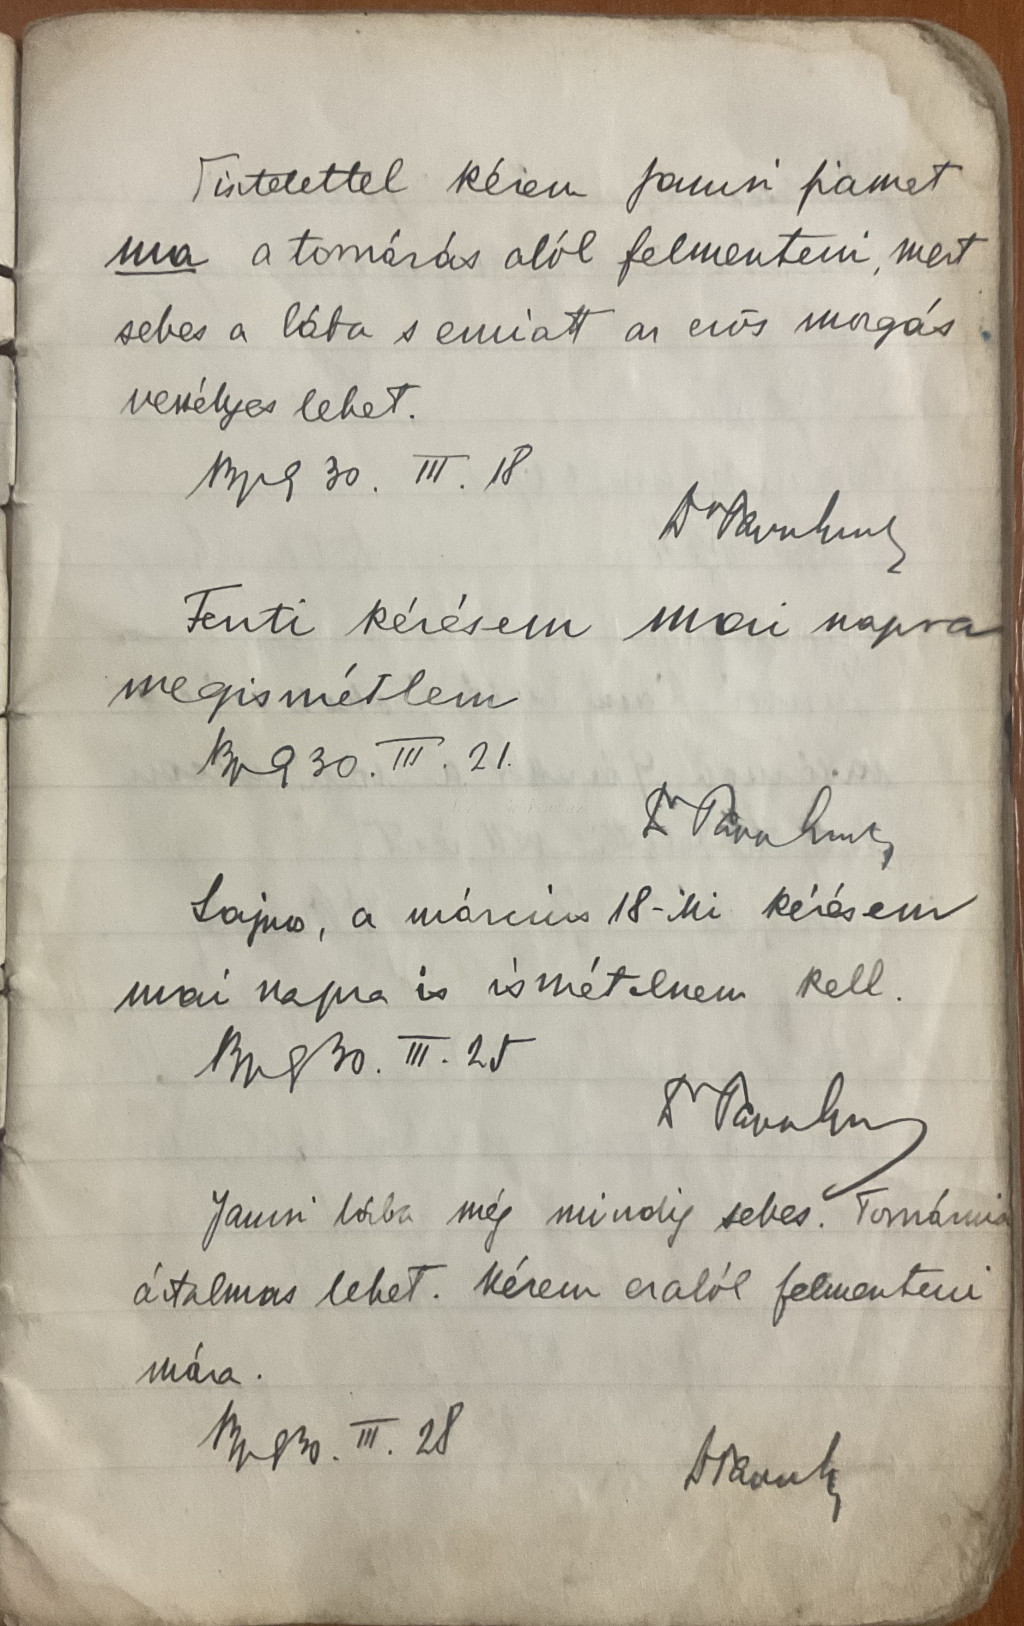 Tisztelettel kérem Jancsi fiamat
ma a tornázás alól felmenteni, mert
sebes a lába s emiatt az erős mozgás
veszélyes lehet.
Bp 930. III. 18
Dr
Fenti kérésem mai napra
megismétlem
Bp 930. III. 21.
Dr
Sajnos, a március 18-iki kérésem
mai napra is ismételnem kell.
Bp 930. III. 25
Dr
Jancsi lába még mindig sebes. Tornáznia
ártalmas lehet. Kérem ezalól felmenteni
mára.
Bp 930. III. 28
Dr